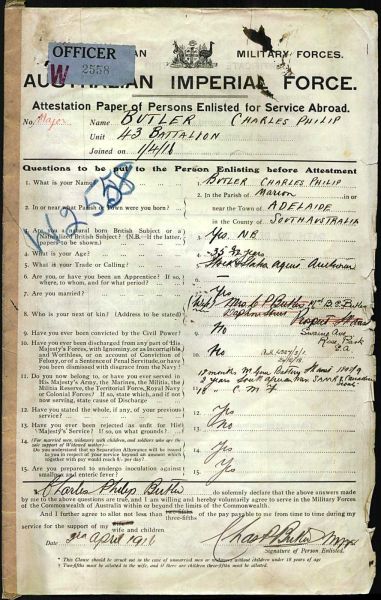 OFFICER
W 2558
AN MILITARY FORCES.
AUSTRALIAN IMPERIAL FORCE.
Attestation Paper of Persons Enlisted for Service Abroad.
No. Major Name BUTLER CHARLES PHILIP
Unit 43 BATTALION
Joined on 1/4/16
Questions to be put to the Person Enlisting before Attestation
W.2558
1. What is your Name? 1. BUTLER CHARLES PHILIP
2. In or near what Parish or Town were you born? 2. In the Parish of Marion
near the Town of ADELAIDE
in the County of SOUTH AUSTRALIA
3. Are you a natural born British Subject or a Naturalized British Subject? (N.B.—If the latter, papers to be shown.) 3. Yes. N.B.
4. What is your Age? 4. 35 years
5. What is your Trade or Calling? 5.
6. Are you, or have you been an Apprentice? If so, where, to whom, and for what period? 6.
7. Are you married? 7. Yes
8. Who is your next of kin? (Address to be stated) 8. Mrs C P Butler
Rose Park
S.A.
9. Have you ever been convicted by the Civil Power? 9. No
10. Have you ever been discharged from any part of His Majesty's Forces, with Ignominy, or as Incorrigible and Worthless, or on account of Conviction of Felony, or of a Sentence of Penal Servitude, or have you been dismissed with disgrace from the Navy? 10. No
11. Do you now belong to, or have you ever served in His Majesty's Army, the Marines, the Militia, the Militia Reserve, the Territorial Force, Royal Navy or Colonial Forces? If so, state which, and if not now serving, state cause of Discharge 11. 18 months
2 year South African War
C M F
12. Have you stated the whole, if any, of your previous service? 12. Yes
13. Have you ever been rejected as unfit for His Majesty's Service? If so, on what grounds? 13. No
14. (For married men, widowers with children, and soldiers who are the sole support of Widowed mother)—
Do you understand that no Separation Allowance will be issued to you in respect of your service beyond an amount which together with pay would reach 8/- per day? 14. Yes
15. Are you prepared to undergo inoculation against smallpox and enteric fever? 15. Yes
I, Charles Philip Butler do solemnly declare that the above answers made
by me to the above questions are true, and I am willing and hereby voluntarily agree to serve in the Military Forces
of the Commonwealth of Australia within or beyond the limits of the Commonwealth.
And I further agree to allot not less than three-fifths of the pay payable to me from time to time during my
service for the support of my wife and children
Date April 1916 Chas P Butler Major
Signature of Person Enlisted.
* This Clause should be struck out in the case of unmarried men or widowers without children under 18 years of age
† Two-fifths must be allotted to the wife, and if there are children three-fifths must be allotted.